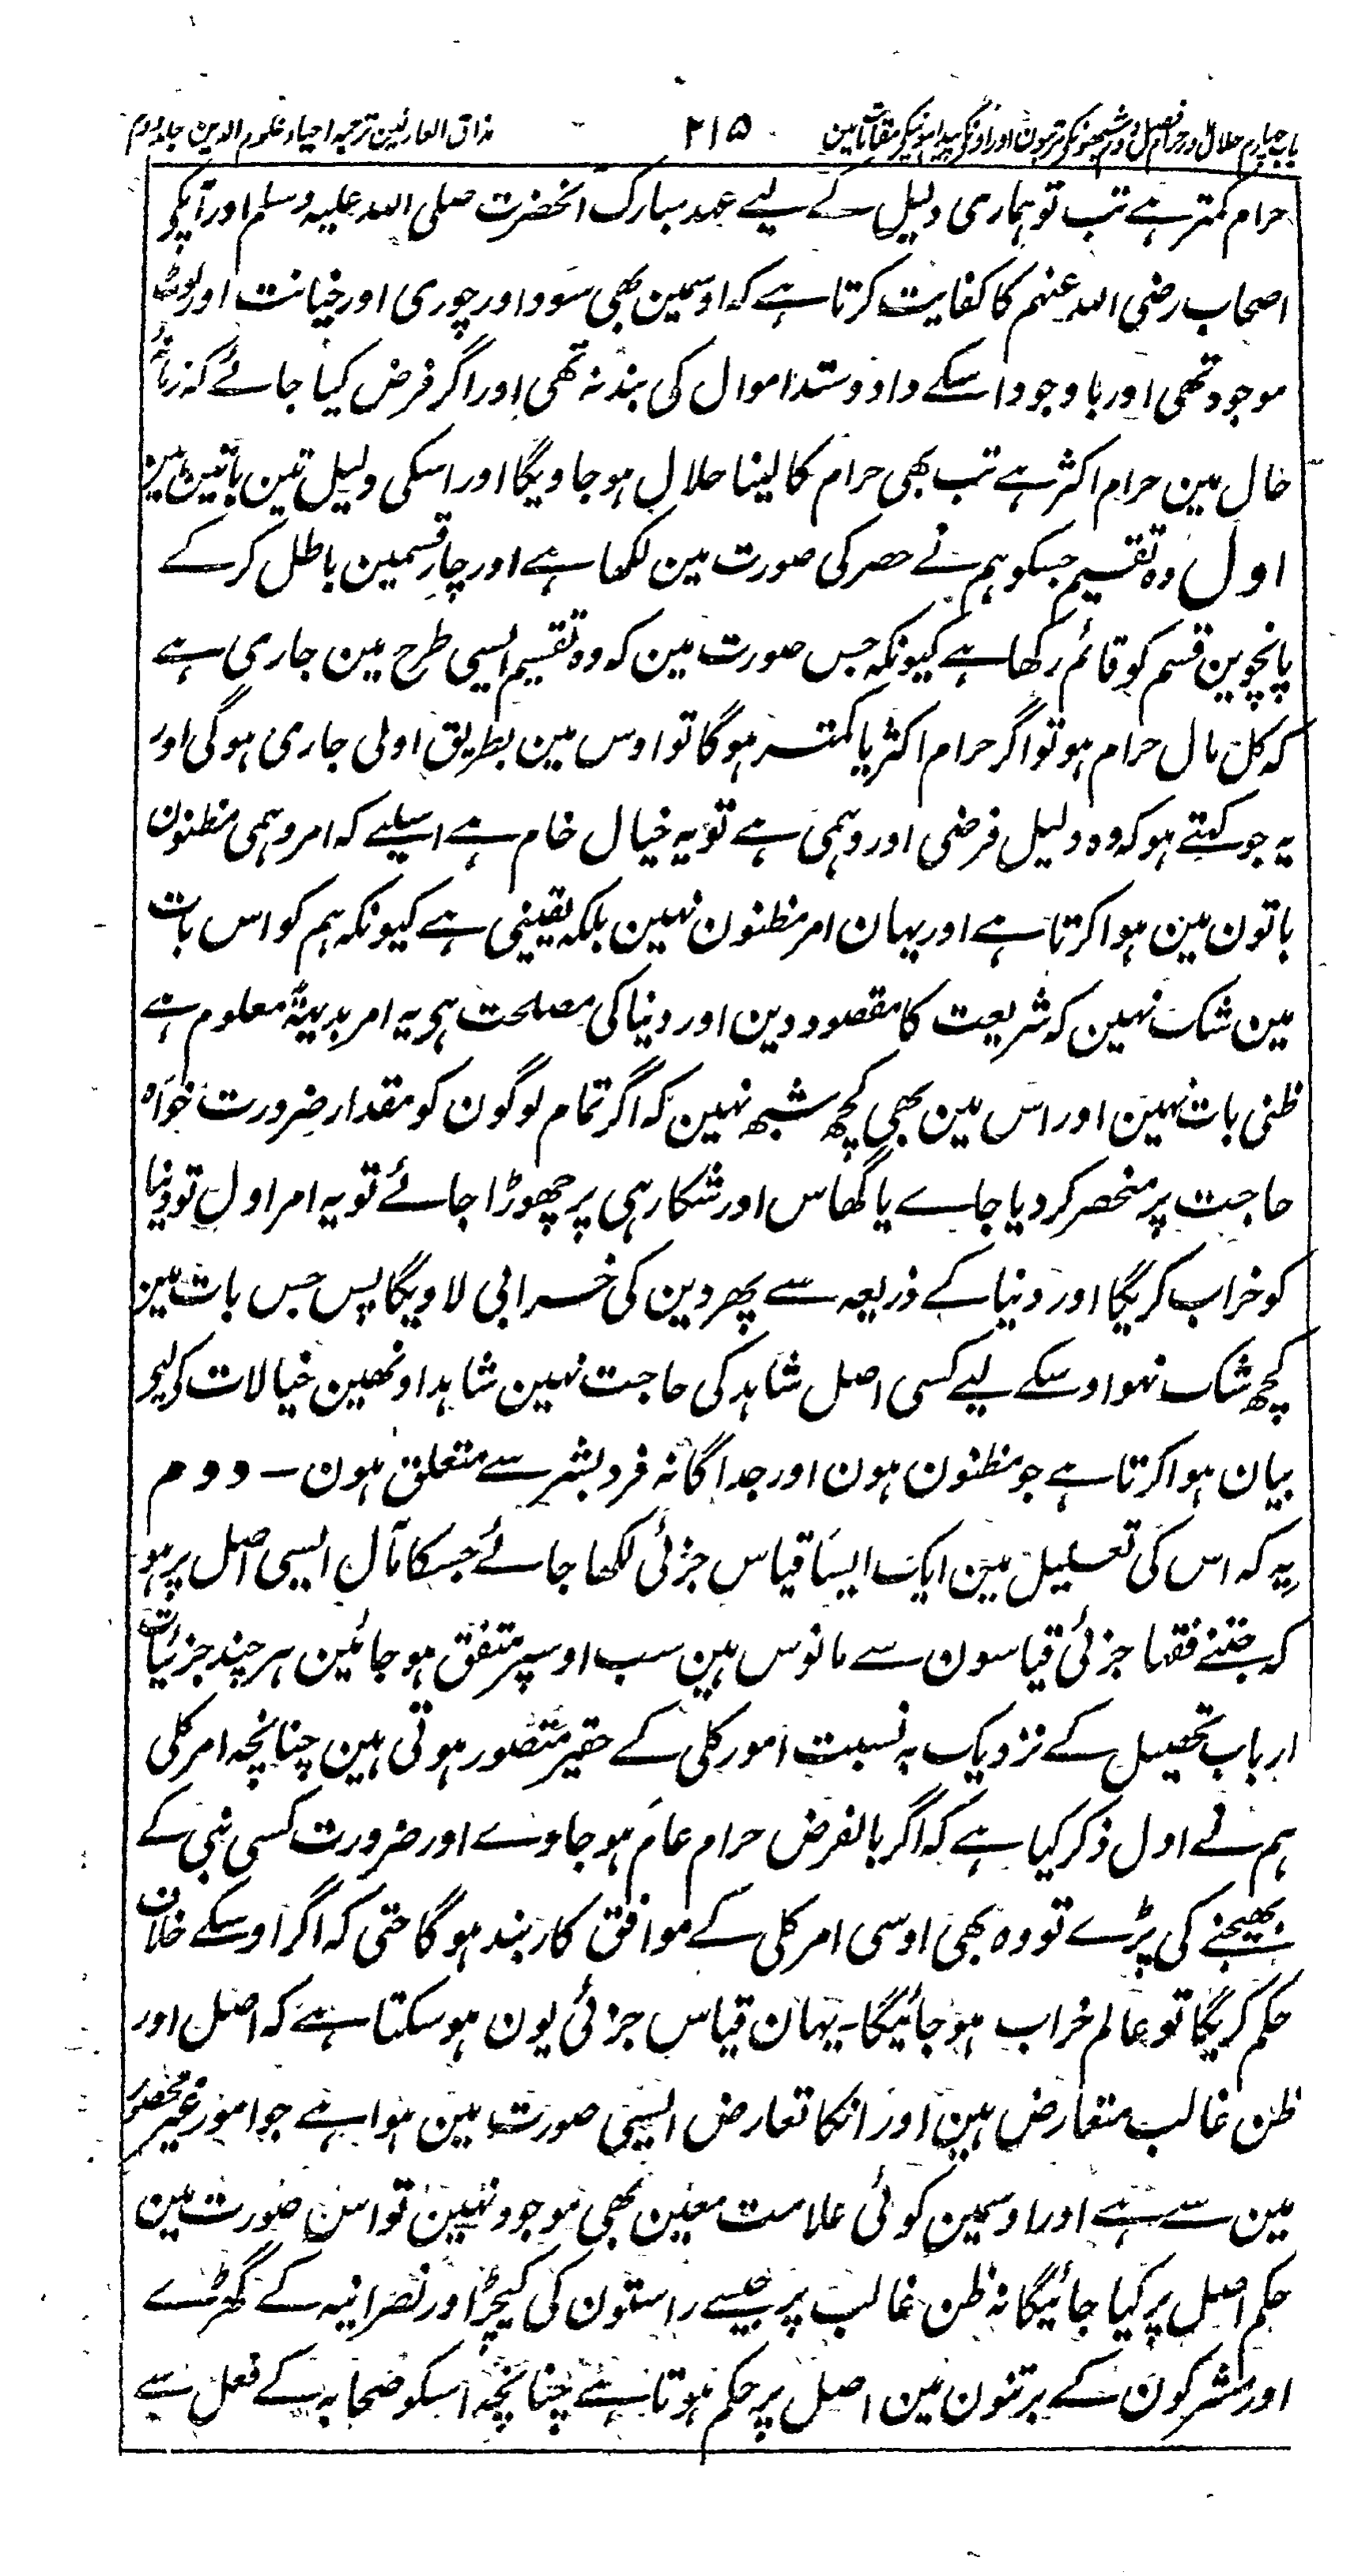 باب چہارم حلال و حرام فصل دوم شبھونکے مرتبون اور اونکی پیدا ہونیکی مقامات مین ۲۱۵ مذاق العارفین ترجمہ احیاء علوم الدین جلد دوم
حرام کمتر ہے تب تو ہماری دلیل کے لیے عہد مبارک آنحضرت صلی اللہ علیہ وسلم اور آپکی
اصحاب رضی اللہ عنہم کا کفایت کرتا ہے کہ اوسمین بھی سود اور چوری اور خیانت اور لوٹ
موجود تھی اور باوجود اسکے داد وستد اموال کی بند نہ تھی اور اگر فرض کیا جائے کہ زمانۂ
حال مین حرام اکثر ہے تب بھی حرام کا لینا حلال ہو جاویگا اور اسکی دلیل تین باتین ہین
اول وہ تقسیم جسکو ہم نے حصر کی صورت مین لکھا ہے اور چار قسمین باطل کر کے
پانچوین قسم کو قائم رکھا ہے کیونکہ جس صورت مین کہ وہ تقسیم ایسی طرح مین جاری ہے
کہ کل مال حرام ہو تو اگر حرام اکثر یا کمتر ہوگا تو اوس مین بطریق اولی جاری ہوگی اور
یہ جو کہتے ہو کہ وہ دلیل فرضی اور وہمی ہے تو یہ خیال خام ہے اسلیے کہ امر وہمی مظنون
باتون مین ہوا کرتا ہے اور یہان امر مظنون نہین بلکہ یقینی ہے کیونکہ ہم کو اس بات
مین شک نہین کہ شریعت کا مقصود دین اور دنیا کی مصلحت ہی یہ امر بدیہۃً معلوم ہے
ظنی بات نہین اور اس مین بھی کچھ شبھ نہین کہ اگر تمام لوگون کو مقدار ضرورت خواہ
حاجت پر منحصر کر دیا جاے یا گھاس اور شکار ہی پر چھوڑا جائے تو یہ امر اول تو دنیا
کو خراب کریگا اور دنیا کے ذریعہ سے پھر دین کی خرابی لاویگا پس جس بات مین
کچھ شک نہو اوسکے لیے کسی اصل شاہد کی حاجت نہین شاہد اونھین خیالات کے لیے
بیان ہوا کرتا ہے جو مظنون ہون اور جداگانہ فرد بشر سے متعلق ہون – دوم
یہ کہ اس کی تعلیل مین ایک ایسا قیاس جزئی لکھا جائے جسکا مآل ایسی اصل پر ہو
کہ جتنے فقہا جزئی قیاسون سے مانوس ہین سب اوسپر متفق ہو جائین ہر چند جزئیات
ارباب تحصیل کے نزدیک بہ نسبت امور کلی کے حقیر متصور ہوتی ہین چنانچہ امر کلی
ہم نے اول ذکر کیا ہے کہ اگر بالفرض حرام عام ہو جاوے اور ضرورت کسی نبی کے
بھیجنے کی پڑے تو وہ بھی اوسی امر کلی کے موافق کاربند ہوگا حتی کہ اگر اوسکے خلاف
حکم کریگا تو عالم خراب ہو جائیگا۔ یہان قیاس جزئی یون ہو سکتا ہے کہ اصل اور
ظن غالب متعارض ہین اور انکا تعارض ایسی صورت مین ہوا ہے جو امور غیر محصور
مین سے ہے اور اوسمین کوئی علامت معین بھی موجود نہین تو اس صورت مین
حکم اصل پر کیا جائیگا نہ ظن غالب پر جیسے راستون کی کیچڑ اور نصرانیہ کے گھڑے
اور مشرکون کے برتنون مین اصل پر حکم ہوتا ہے چنانچہ اسکو صحابہ کے فعل سے